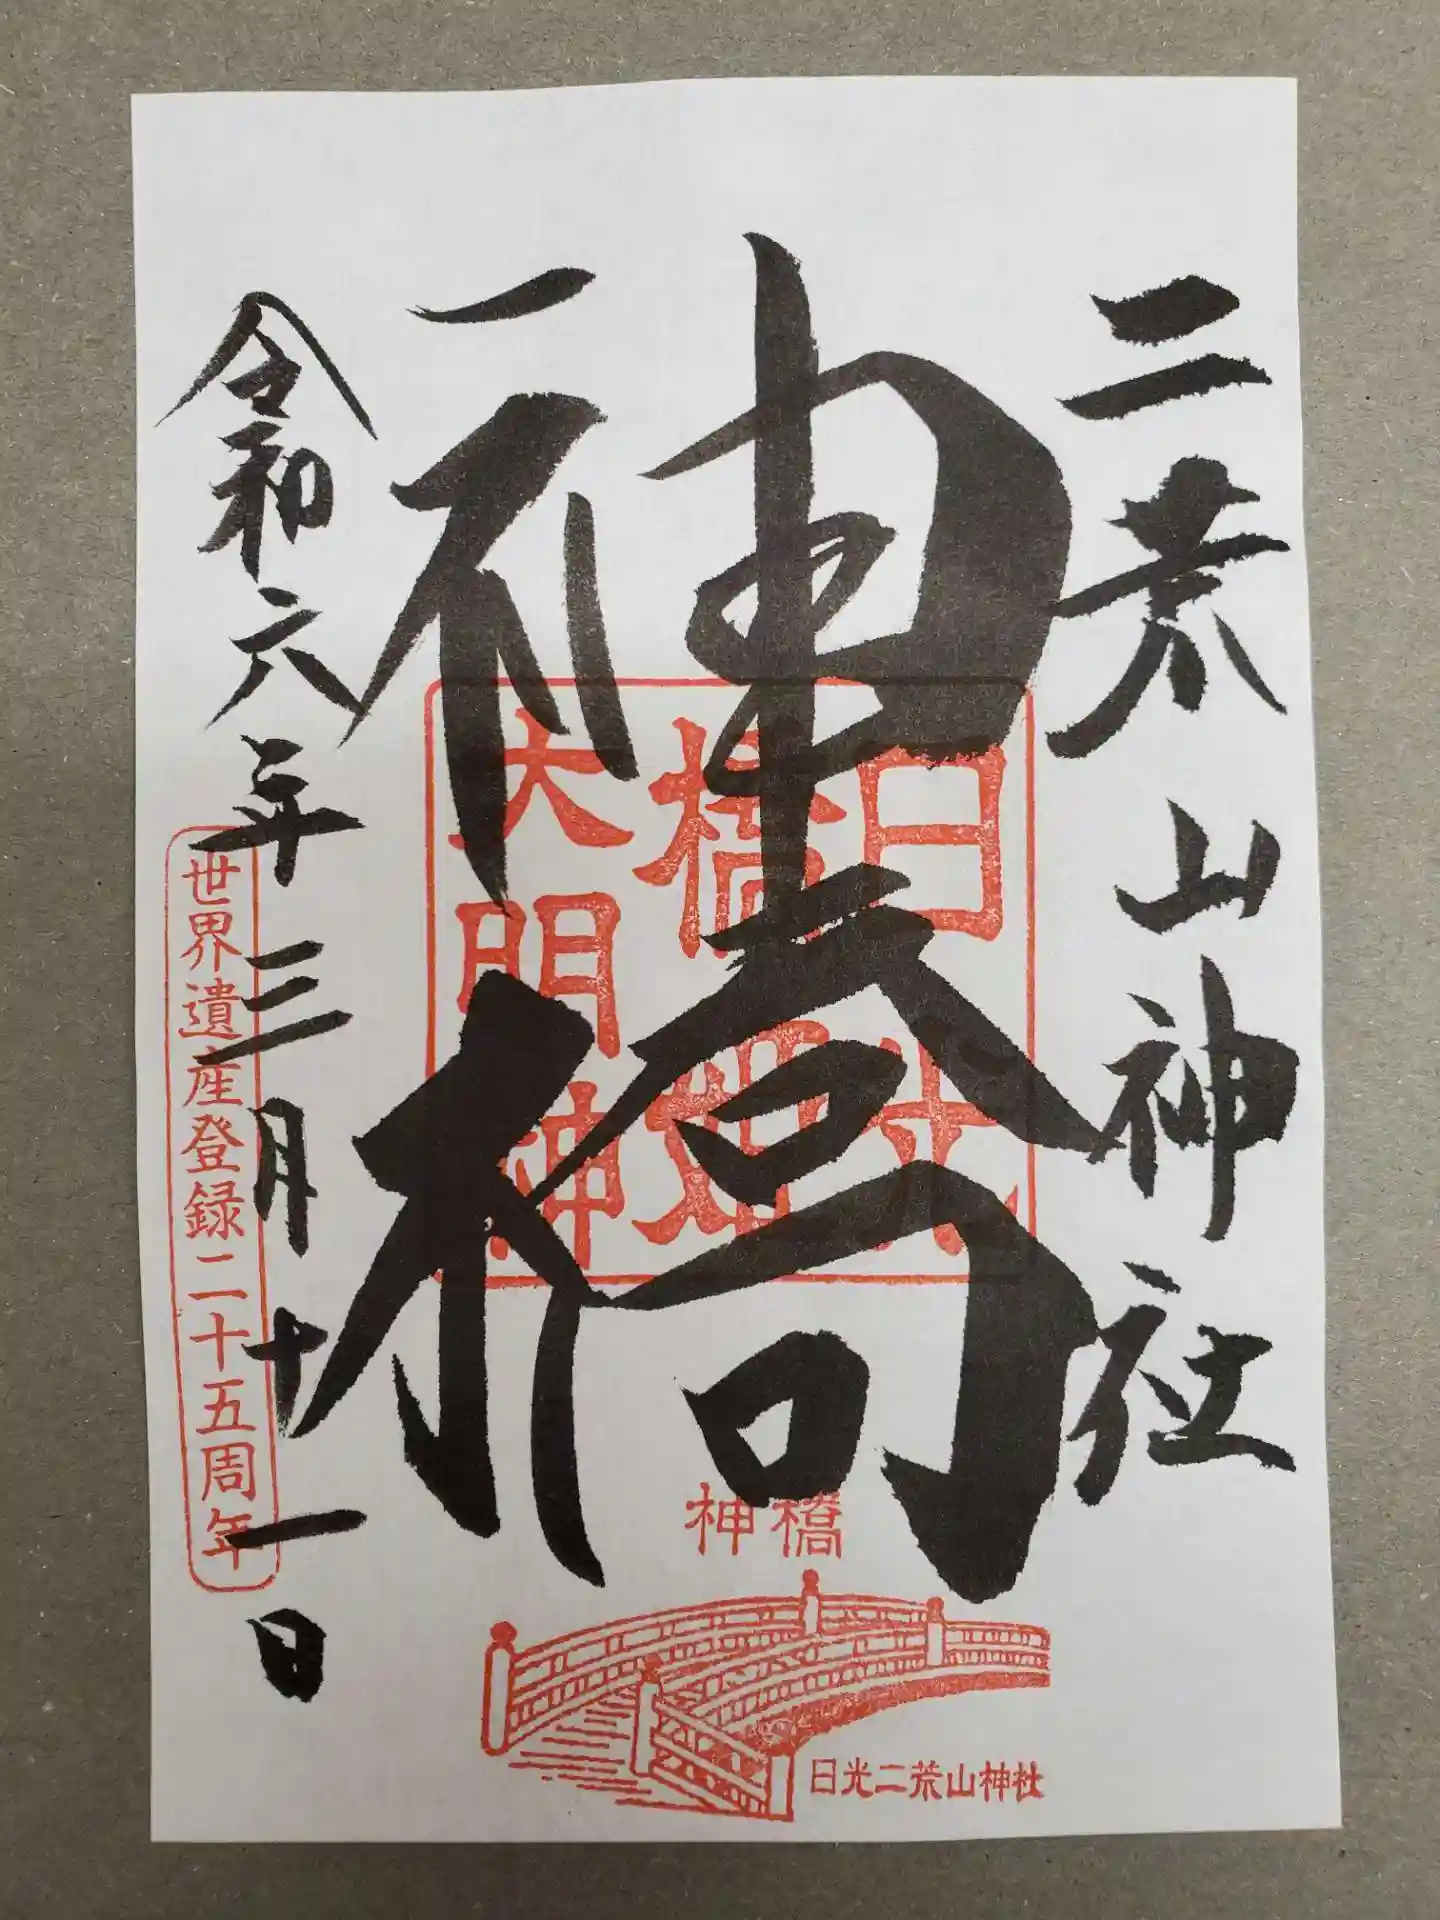 二荒山神社
神橋
令和六年三月十一日
日光
橋姫
大明神
世界遺産登録二十五周年
神橋
日光二荒山神社